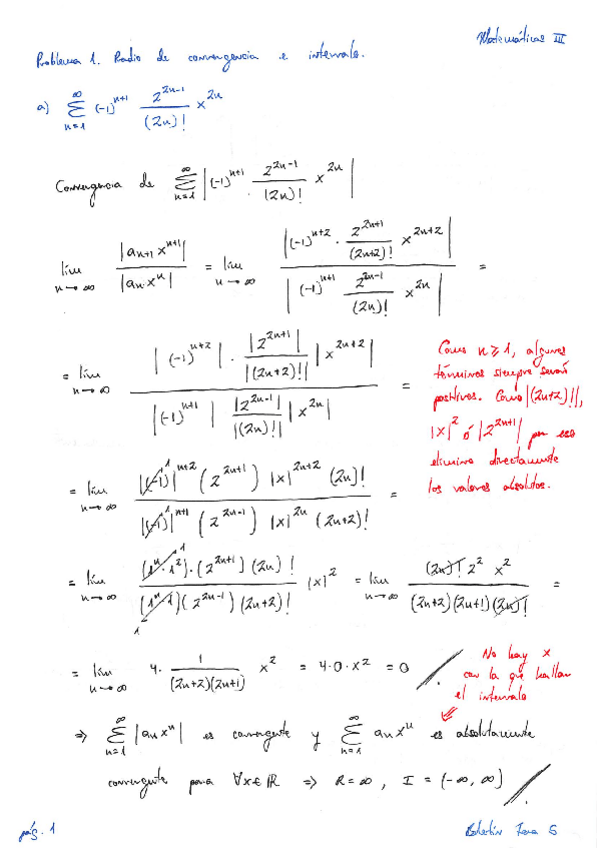 Matemáticas III
Problema 1. Radio de convergencia e intervalo.
a) ∑_{n=1}^{∞} (-1)^{n+1} 2^{2n-1}/(2n)! x^{2n}
Convergencia de ∑_{n=1}^{∞} |(-1)^{n+1} · 2^{2n-1}/(2n)! x^{2n}|
lím_{n→∞} |a_{n+1} x^{n+1}|/|a_n·x^n| = lím_{n→∞} |(-1)^{n+2} · 2^{2n+1}/(2n+2)! x^{2n+2}| / |(-1)^{n+1} 2^{2n-1}/(2n)! x^{2n}| =
= lím_{n→∞} |(-1)^{n+2}| · |2^{2n+1}|/|(2n+2)!| |x^{2n+2}| / |(-1)^{n+1}| |2^{2n-1}|/|(2n)!| |x^{2n}| =
Como n ≥ 1, algunos
términos siempre serán
positivos. Como |(2n+2)!|,
|x|^2 ó |2^{2n+1}| por eso
elimino directamente
los valores absolutos.
= lím_{n→∞} |(-1)|^{n+2} (2^{2n+1}) |x|^{2n+2} (2n)! / |(-1)|^{n+1} (2^{2n-1}) |x|^{2n} (2n+2)! =
= lím_{n→∞} (1^n · 1^2)·(2^{2n+1})(2n)! / (1^n·1)(2^{2n-1})(2n+2)! |x|^2 = lím_{n→∞} (2n)! 2^2 x^2 / (2n+2)(2n+1)(2n)! =
= lím_{n→∞} 4· 1/(2n+2)(2n+1) x^2 = 4·0·x^2 = 0
No hay x
con la que hallar
el intervalo
⇒ ∑_{n=1}^{∞} |a_n x^n| es convergente y ∑_{n=1}^{∞} a_n x^n es absolutamente
convergente para ∀x∈ℝ ⇒ R=∞, I = (-∞, ∞)
pág. 1
Boletín Tema 5